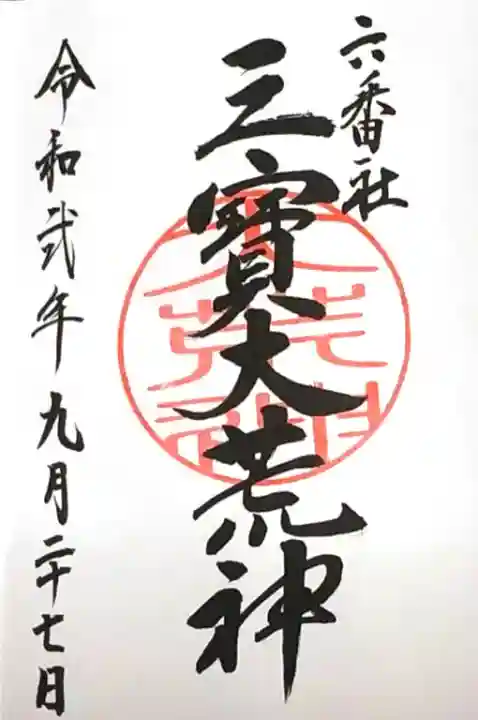 六番社
三寳大荒神
令和弐年九月二十七日